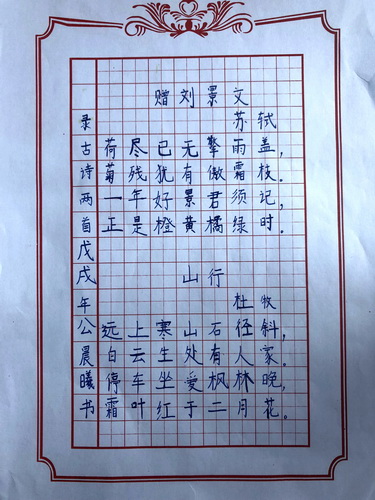 赠刘景文
苏轼
荷尽已无擎雨盖，
菊残犹有傲霜枝。
一年好景君须记，
正是橙黄橘绿时。
山行
杜牧
远上寒山石径斜，
白云生处有人家。
停车坐爱枫林晚，
霜叶红于二月花。
录古诗两首戊戌年公晨曦书